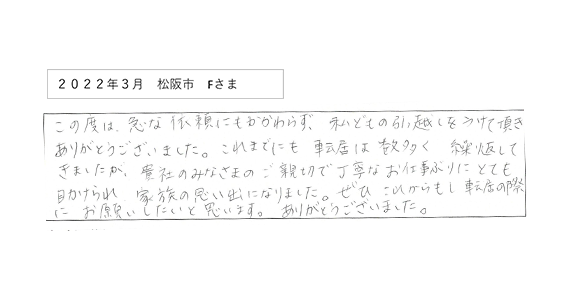 2022年3月 松阪市 Fさま
この度は、急な依頼にもかかわらず、私どもの引越しをうけて頂き
ありがとうございました。これまでにも 転居は数多く 繰返して
きましたが、貴社のみなさまのご親切で丁寧なお仕事ぶりにとても
助けられ、家族の思い出になりました。ぜひ これからもし転居の際
に お願いしたいと思います。 ありがとうございました。